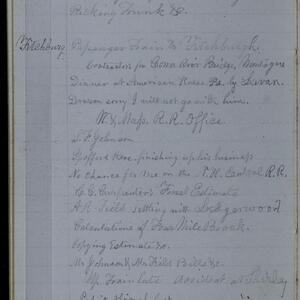 Packing Trunk &c.
Fitchburg Passenger Train to Fitchburgh.
Contractor for Conn River Bridge, Montague
Dinner at American House Pd. by Lavan.
Dawson sorry I will not go with him.
V. & Mass. R.R. Office
S. F. Johnson
Spofford here, finishing up his business
No Chance for me on the N.Y. Central R.R.
C. C. Carpenter's Final Estimate
A. R. Field settling with Ledgerwood
Calculations of Four Mile Brook.
Copying Estimate &c.
Mr Johnson & Mr Field Bills &c
Up Train late accident at Shirley